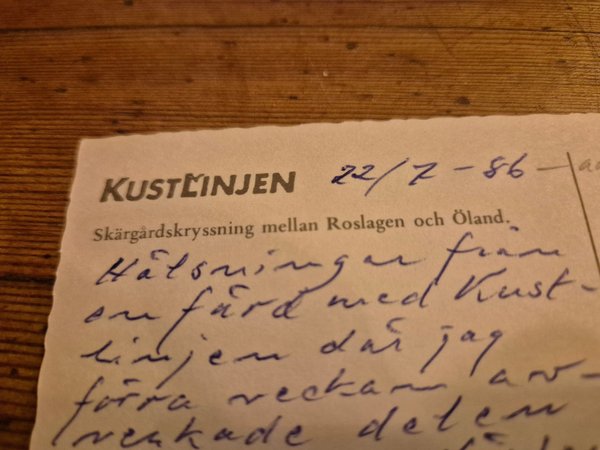 KUSTLINJEN 22/7-86
Skärgårdskryssning mellan Roslagen och Öland.
Hälsningar från
en färd med Kust-
linjen där jag
förra veckan av-
verkade delen